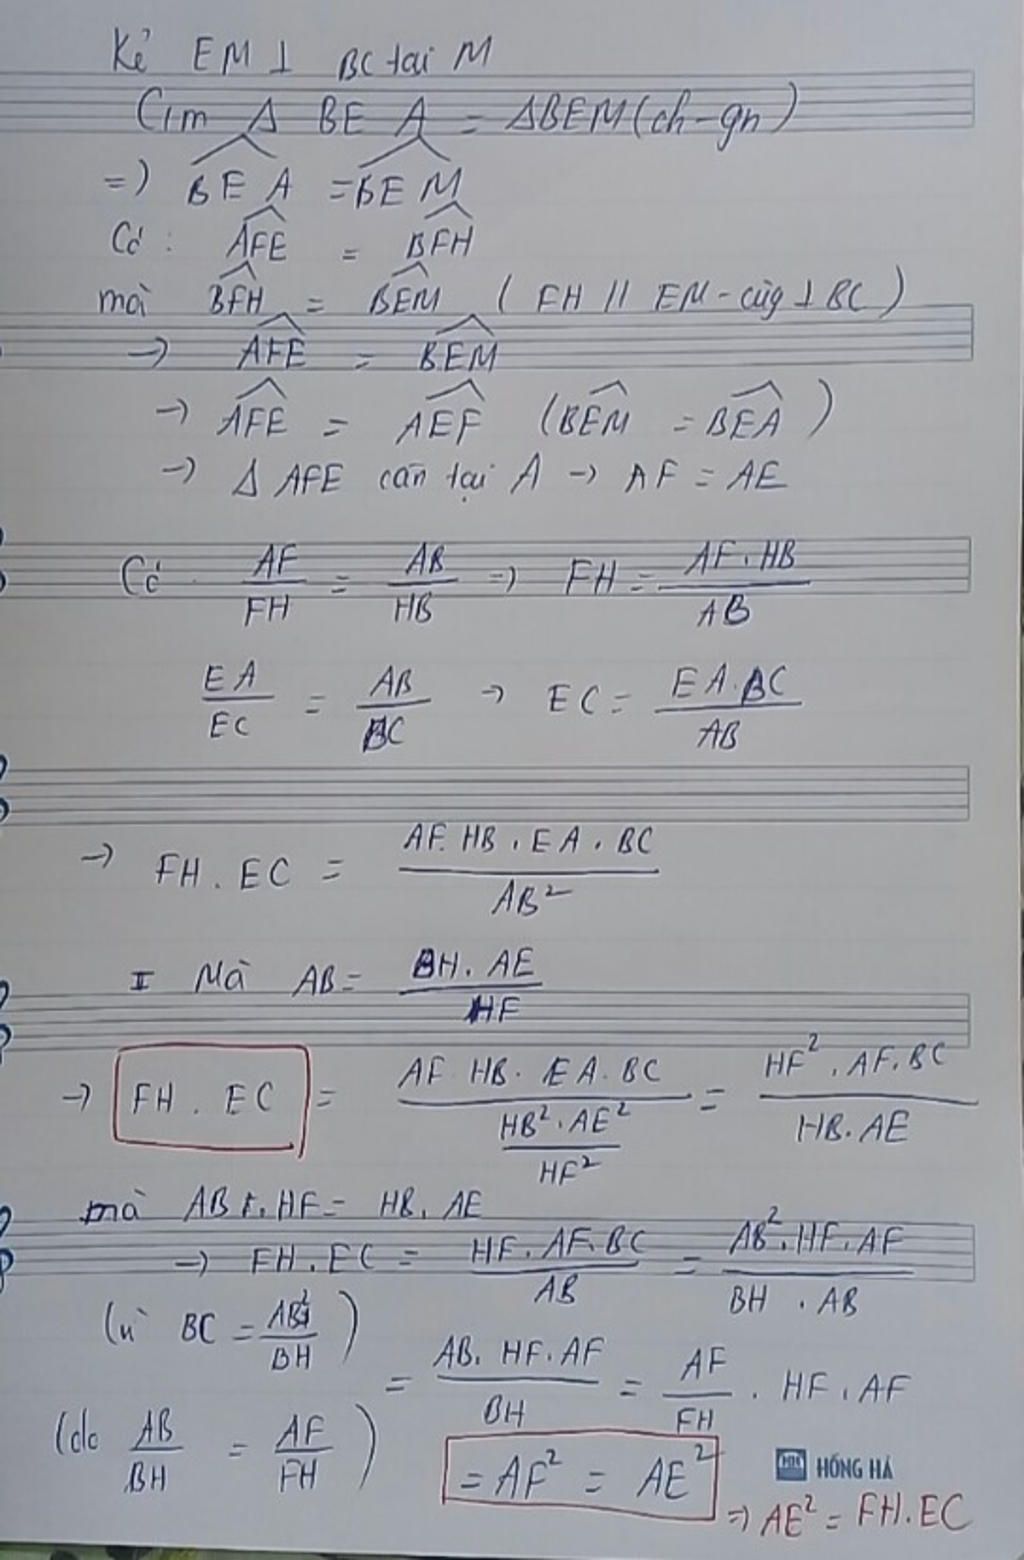 Kẻ EM ⊥ BC tại M
C/m Δ BEA = ΔBEM (ch-gn)
=> \widehat{BEA} = \widehat{BEM}
Có : \widehat{AFE} = \widehat{BFH}
mà \widehat{BFH} = \widehat{BEM} ( FH // EM - cùg ⊥ BC )
→ \widehat{AFE} = \widehat{BEM}
→ \widehat{AFE} = \widehat{AEF} (\widehat{BEM} = \widehat{BEA})
→ Δ AFE cân tại A → AF = AE
Có \frac{AF}{FH} = \frac{AB}{HB} => FH = \frac{AF.HB}{AB}
\frac{EA}{EC} = \frac{AB}{BC} → EC = \frac{EA.BC}{AB}
→ FH.EC = \frac{AF.HB.EA.BC}{AB^2}
Mà AB = \frac{BH.AE}{HF}
→ FH.EC = \frac{AF.HB.EA.BC}{\frac{HB^2.AE^2}{HF^2}} = \frac{HF^2.AF.BC}{HB.AE}
mà AB.HF = HB.AE
→ FH.EC = \frac{HF.AF.BC}{AB} = \frac{AB^2.HF.AF}{BH.AB}
(vì BC = \frac{AB^2}{BH})
= \frac{AB.HF.AF}{BH} = \frac{AF}{FH}.HF.AF
(do \frac{AB}{BH} = \frac{AF}{FH})
= AF^2 = AE^2
HH HỒNG HÀ
=> AE^2 = FH.EC